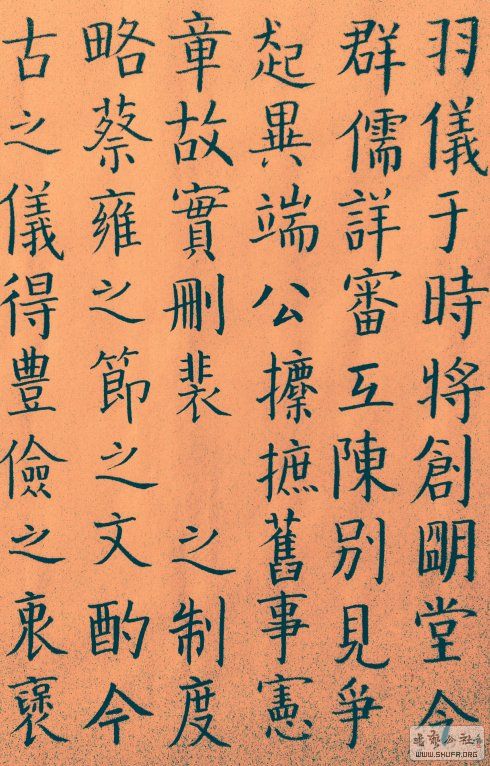 羽儀于時將創明堂令
群儒詳審互陳別見爭
起異端公攈摭舊事憲
章故實刪裴之制度
略蔡雍之節之文酌今
古之儀得豊儉之衷褒
WWW.SHUFA.ORG